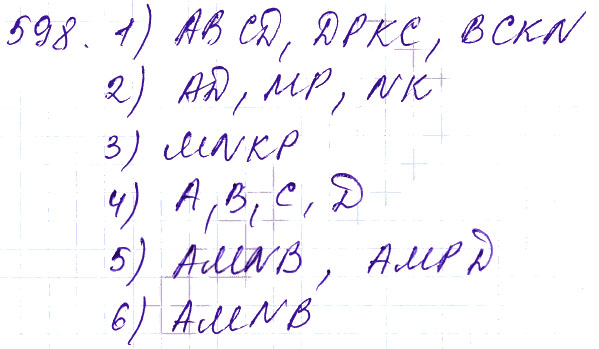 598. 1) ABCD, DPKC, BCKN
2) AD, MP, NK
3) MNKP
4) A, B, C, D
5) AMNB, AMPD
6) AMNB